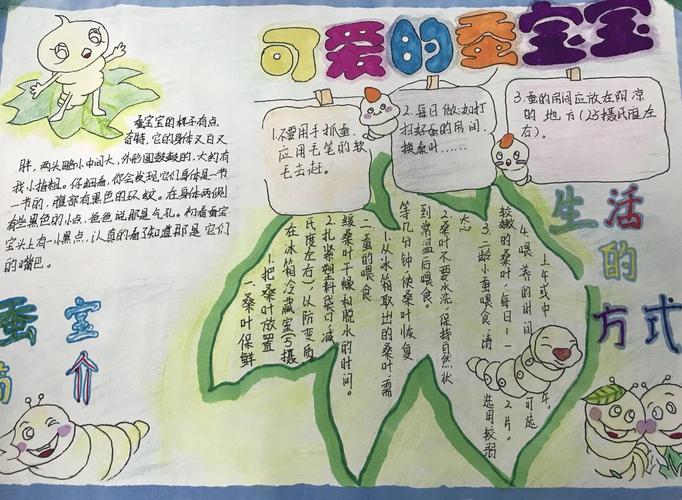 可爱的蚕宝宝
蚕宝宝的样子有点
奇特,它的身体又白又
胖,两头略小中间大,外形圆鼓鼓的,大约有
我小指粗。仔细看,你会发现它们身体是一节
一节的,腹部有黑色的环蚊。在身体两侧
有些黑色的小点,爸爸说那是气孔。初看蚕宝
宝头上有一小黑点,认真的看了知道那是它们
的嘴巴。
蚕宝
简介
1.不要用手抓蚕,
应用毛笔的软
毛去赶。
2.每日做:如打
扫好蚕的房间,
换桑叶……
3.蚕的房间应放在阴凉
的地方(25摄氏度左
右)。
生活
的
方式
一、桑叶保鲜
1.把桑叶放置
在冰箱冷藏室(5摄
氏度左右),以防变质
2.扎紧塑料袋可减
缓桑叶干燥和脱水的时间。
二、蚕的喂食
1.从冰箱取出的桑叶,需
等几分钟,使桑叶恢复
到常温后喂食。
2.桑叶不要水洗,保持自然状
态
3.二龄小蚕喂食,请选用较弱
较嫩的桑叶,每日1—2片。
4.喂养的时间可选
上午或中午。